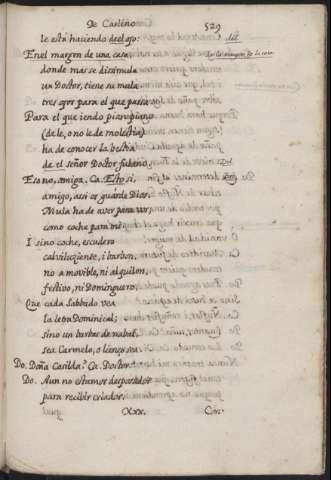 De Carlino. 529
le està haciendo del ojo:
En el margen de una casa
donde mas se dissimula
un Doctor, tiene su mula
tres ojos para el que passa
Para el que iendo pian piano
(de le, o no le de molestia)
ha de conocer la bestia
de el señor Doctor fulano.
Eso no, amiga. Ca. Esto si,
amigo, assi os guarde Dios.
Mula ha de aver para vos
como coche para mi
I sino coche, escudero
calvi luciente, i barbon,
no a movible, ni alquilon,
festivo, ni Dominguero,
Que cada Sabbado vea
la letra Dominical;
sino un barbas de nabal,
sea Carmelo, o lienço no
Do. Doña Casilda? Ca. Doctor.
Do. Aun no estamos desposados
para recibir criados.
Xxx. Con-